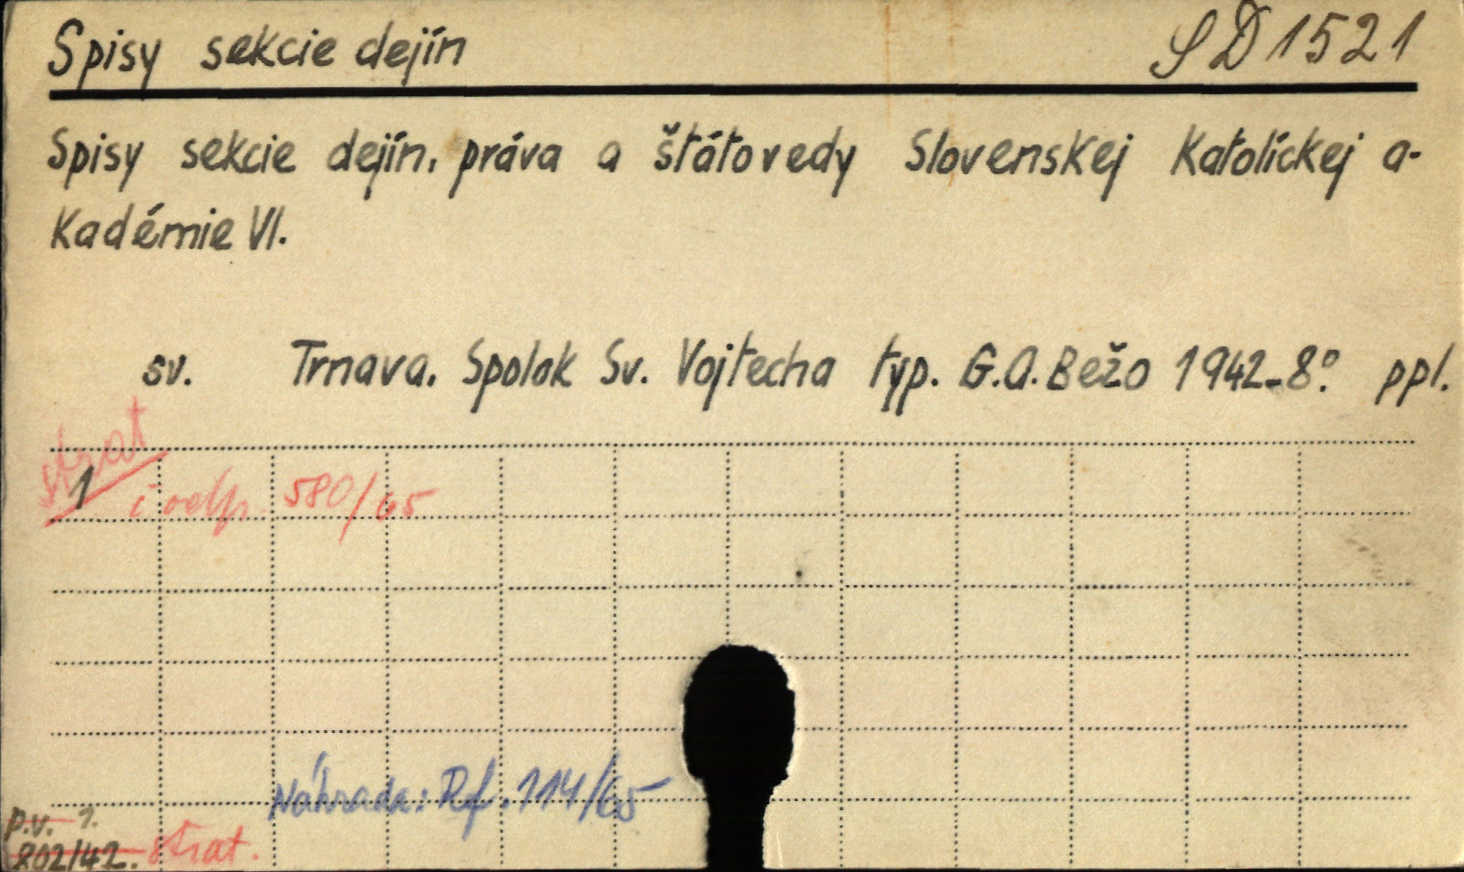 Spisy sekcie dejín SD 1521
Spisy sekcie dejín, práva a štátovedy Slovenskej Katolíckej a-
Kadémie VI.
sv. Trnava. Spolok Sv. Vojtecha typ. G.A. Bežo 1942-8°. ppl.
strat
1 i odp. 580/65
Náhrada: Rf. 114/65
p.v. 1.
802/42. strat.